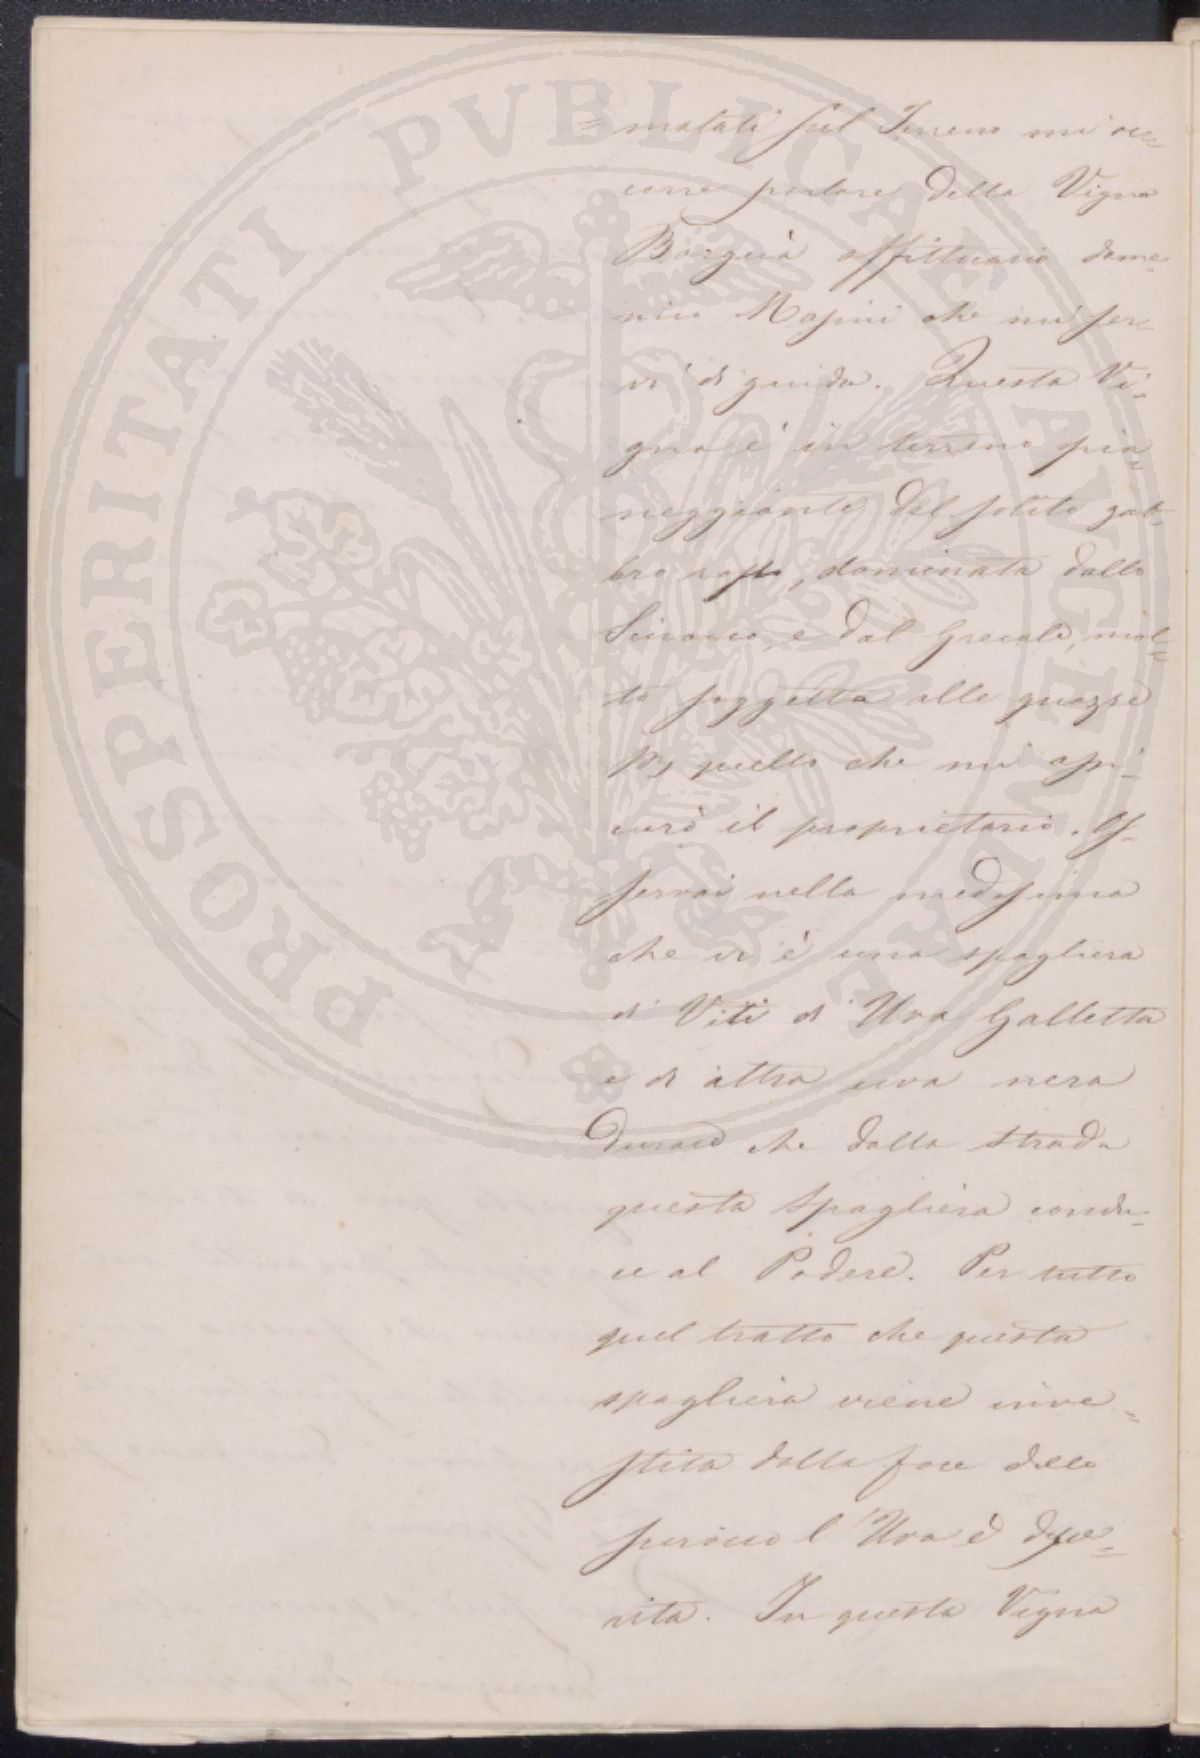 PROSPERITATI PVBLICAE AVGENDAE
= malati sul Terreno mi oc=
corre parlare della Vigna
Borguà affittuario dome=
nico Masini che mi ser=
vi di guida. Questa Vi=
gna è in terreno pia=
neggiante del solito gab=
bro rosso, dominata dallo
Scirocco, e dal Grecale, mol=
to soggetta alle guazze
per quello che mi assi=
curò il proprietario. Os=
servai nella medesima
che vi è una spagliera
di Viti di Uva Galletta
e di altra uva nera
Durace che dalla strada
questa Spagliera condu=
ce al Podere. Per tutto
quel tratto che questa
spagliera viene inve=
stita dalla foce dello
scirocco l'Uva è depe=
rita. In questa Vigna